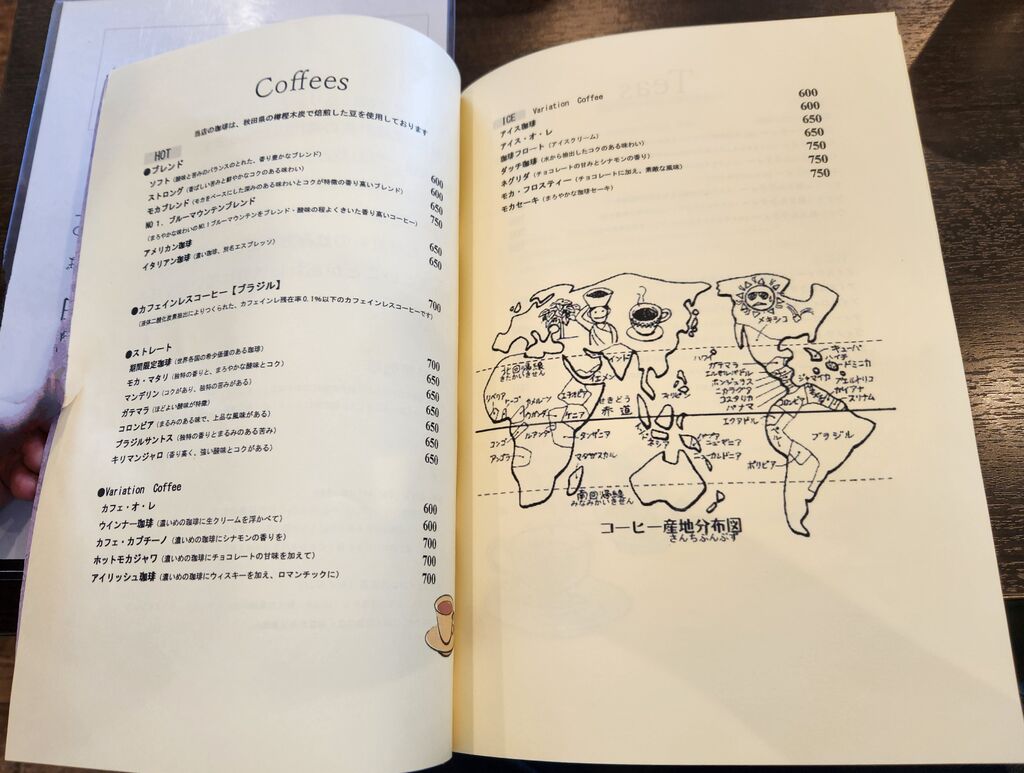 Coffees
当店の珈琲は、秋田県の楢樫木炭で焙煎した豆を使用しております
HOT
●ブレンド
ソフト(酸味と苦みのバランスのとれた、香り豊かなブレンド) 600
ストロング(香ばしい苦みと鮮やかなコクのある味わい) 600
モカブレンド(モカをベースにした深みのある味わいとコクが特徴の香り高いブレンド) 650
NO 1. ブルーマウンテンブレンド 750
(まろやかな味わいのNO.1ブルーマウンテンをブレンド・酸味の程よくきいた香り高いコーヒー)
アメリカン珈琲 650
イタリアン珈琲(濃い珈琲、別名エスプレッソ) 650
●カフェインレスコーヒー【ブラジル】 700
(液体二酸化炭素抽出によりつくられた、カフェインレ残在率0.1%以下のカフェインレスコーヒーです)
●ストレート
期間限定珈琲(世界各国の希少価値のある珈琲) 700
モカ・マタリ(独特の香りと、まろやかな酸味とコク) 650
マンデリン(コクがあり、独特の苦みがある) 650
ガテマラ(ほどよい酸味が特徴) 650
コロンビア(まるみのある味で、上品な風味がある) 650
ブラジルサントス(独特の香りとまるみのある苦み) 650
キリマンジャロ(香り高く、強い酸味とコクがある) 650
●Variation Coffee
カフェ・オ・レ 600
ウインナー珈琲(濃いめの珈琲に生クリームを浮かべて) 600
カフェ・カプチーノ(濃いめの珈琲にシナモンの香りを) 700
ホットモカジャワ(濃いめの珈琲にチョコレートの甘味を加えて) 700
アイリッシュ珈琲(濃いめの珈琲にウィスキーを加え、ロマンチックに) 700
ICE Variation Coffee
アイス珈琲 600
アイス・オ・レ 600
珈琲フロート(アイスクリーム) 650
ダッチ珈琲(水から抽出したコクのある味わい) 650
ネグリダ(チョコレートの甘みとシナモンの香り) 750
モカ・フロスティー(チョコレートに加え、素敵な風味) 750
モカセーキ(まろやかな珈琲セーキ) 750
メキシコ
キューバ
ハイチ
ドミニカ
ハワイ
ガテマラ
エルサルバドル
ホンジュラス
ニカラグア
コスタリカ
パナマ
ジャマイカ
プエルトリコ
ガイアナ
スリナム
コロンビア
エクアドル
ペルー
ブラジル
ボリビア
北回帰線
きたかいきせん
インド
イエメン
エチオピア
リベリア
カメルーン
ウガンダ
ケニア
ルアンダ
コンゴ
アンゴラ
タンザニア
マダガスカル
せきどう
赤道
フィリピン
ニューギニア
ニューカレドニア
南回帰線
みなみかいきせん
コーヒー産地分布図
さんちぶんぷず